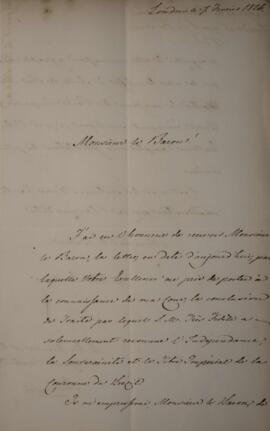 Londres le 7 Fevrier 1826.
Monsieur le Baron!
J'ai eu l'honneur de recevoir Monsieur
le Baron, la lettre, en date d'aujourd'hui, par
laquelle Votre Excellence me prie de porter à
la connaissance de ma Cour, la conclusion
du Traité par lequel S. M. Très Fidèle a
solemnellement reconnu l'Indépendance,
la Souveraineté et le Titre Impérial de la
Couronne du Brézil
Je m'empresserai Monsieur le Baron, de